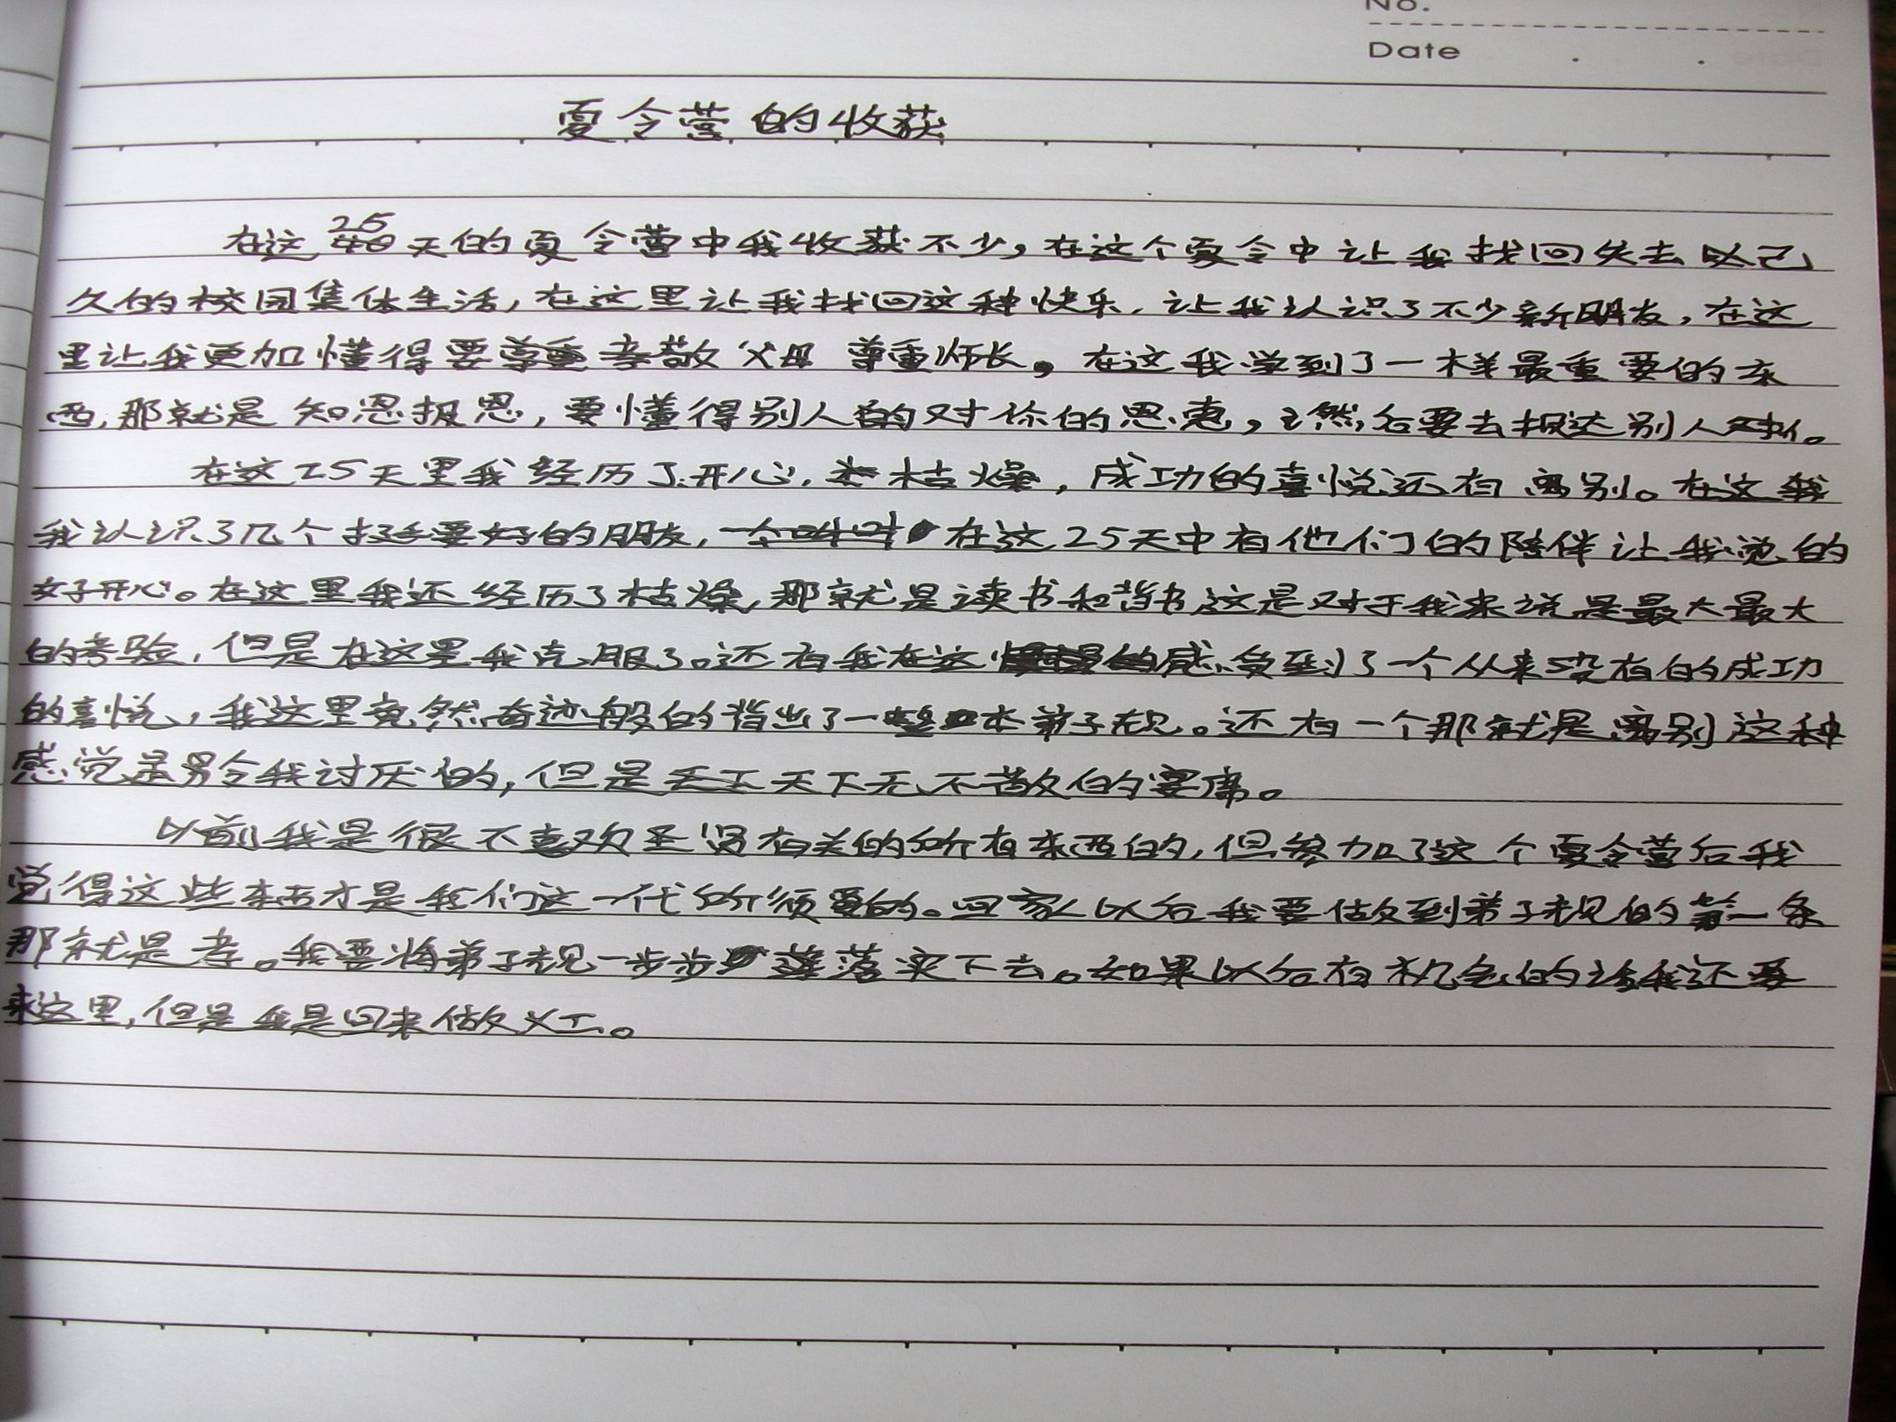 No.
Date
夏令营的收获
在这25天的夏令营中我收获不少，在这个夏令中让我找回失去以己
久的校园集体生活，在这里让我找回这种快乐，让我认识了不少新朋友，在这
里让我更加懂得要孝敬父母 尊重师长。在这我学到了一样最重要的东
西，那就是知恩报恩，要懂得别人的对你的恩惠，然后要去报达别人。
在这25天里我经历了开心，枯燥，成功的喜悦还有离别。在这
我认识了几个挺要好的朋友，在这25天中有他们的陪伴让我觉的
好开心。在这里我还经历了枯燥，那就是读书和背书这是对于我来说是最大最大
的考验，但是在这里我克服了。还有我在这感受到了一个从来没有的成功
的喜悦，我这里竟然奇迹般的背出了一整本弟子规。还有一个那就是离别这种
感觉是另令我讨厌的，但是天下无不散的宴席。
以前我是很不喜欢圣贤有关的所有东西的，但参加了这个夏令营后我
觉得这些东西才是我们这一代所须要的。回家以后我要做到弟子规的第一条
那就是孝。我要将弟子规一步步落实下去。如果以后有机会的话我还要
来这里，但是我是回来做义工。